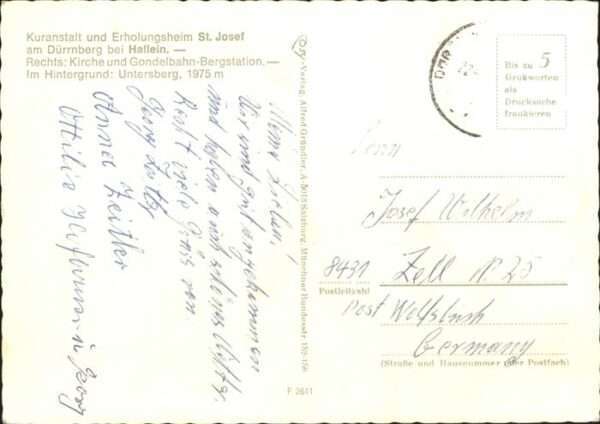 Kuranstalt und Erholungsheim St. Josef
am Dürrnberg bei Hallein. —
Rechts: Kirche und Gondelbahn-Bergstation. —
Im Hintergrund: Untersberg, 1975 m
Meine Lieben!
Wir sind gut angekommen
und haben auch schönes Wetter.
Recht viele Grüsse von
Georg
Anna Zeitler
Ottilie
Verlag: Alfred Gründler, A-5018 Salzburg, Münchner Bundesstr. 152-156
F 2641
Bis zu 5
Grußworten
als
Drucksache
frankieren
Josef Wilhelm
8431 Zell N 25
Postleitzahl
Post Wolfsbuch
Germany
(Straße und Hausnummer oder Postfach)